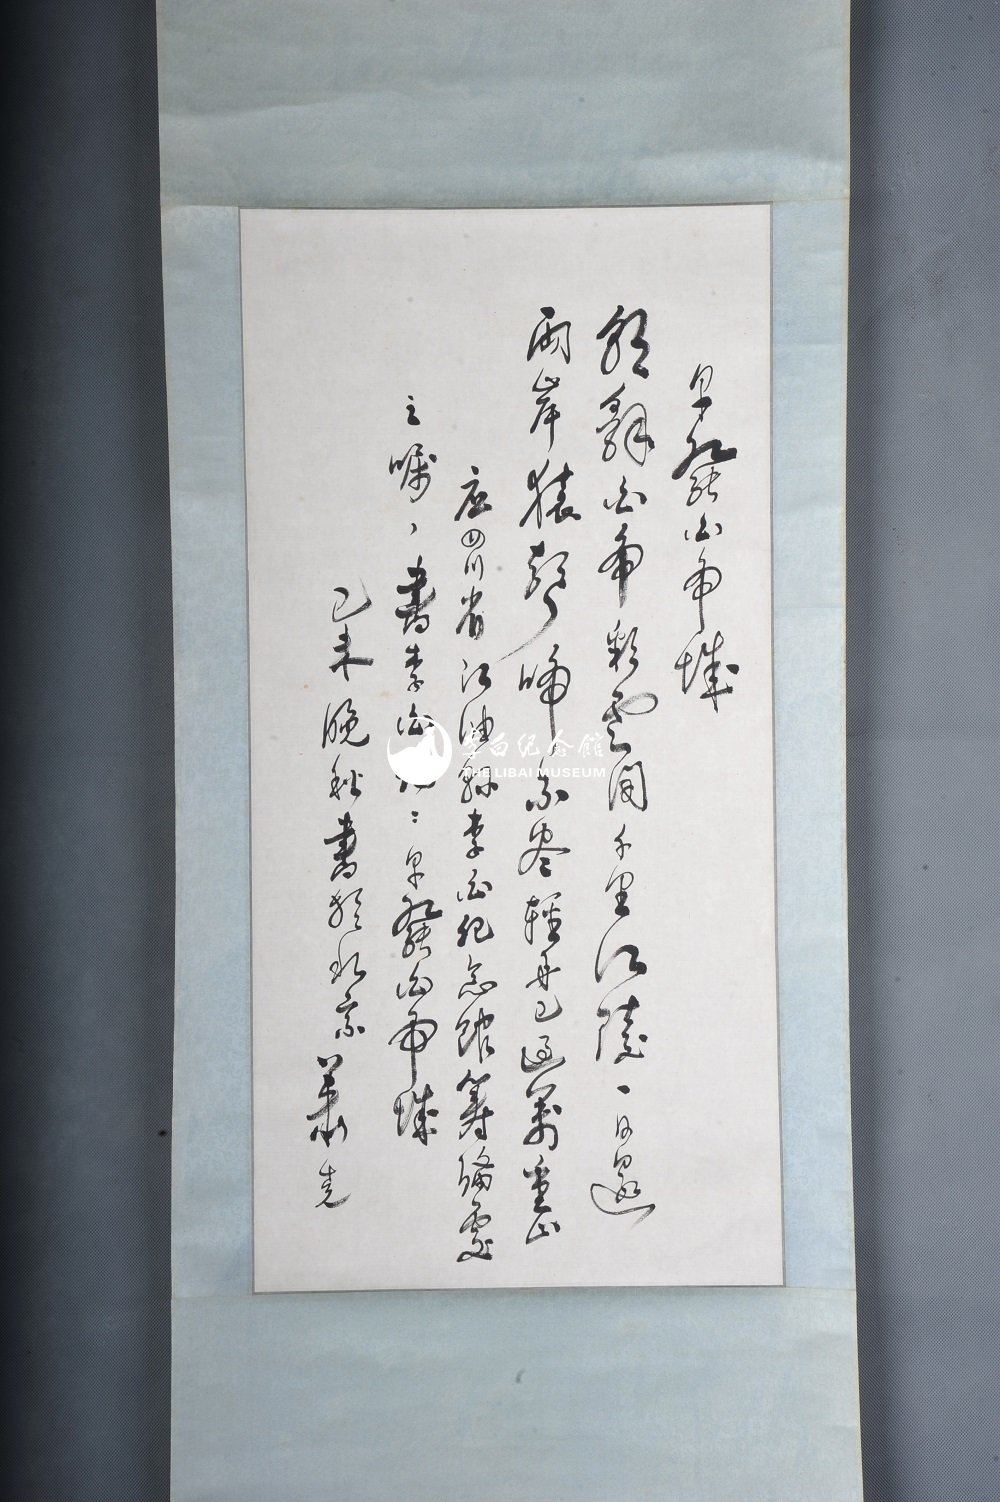 早發白帝城
朝辭白帝彩雲間千里江陵一日還
兩岸猿聲啼不盡輕舟已過萬重山
应四川省江油縣李白纪念馆筹備處
之嘱，書李白詩：早發白帝城
己未晚秋書於北京 萧尧
李白纪念館
THE LIBAI MUSEUM